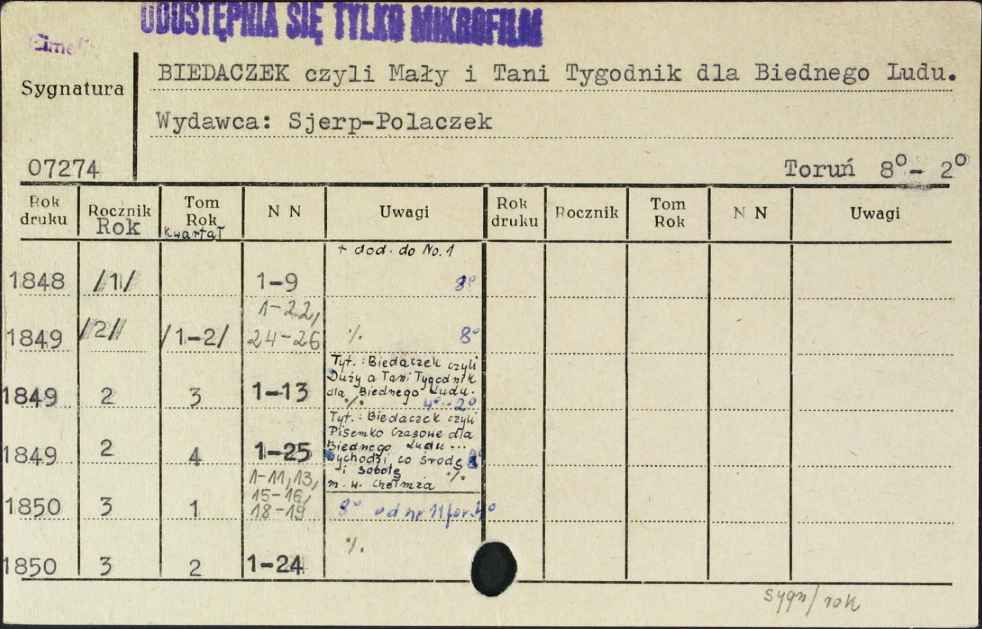 UDOSTĘPNIA SIĘ TYLKO MIKROFILM
Cimelia
Sygnatura
BIEDACZEK czyli Mały i Tani Tygodnik dla Biednego Ludu.
Wydawca: Sjerp-Polaczek
07274
Toruń 8° - 2°
Rok druku Rocznik Rok Tom Rok kwartał N N Uwagi Rok druku Rocznik Tom Rok N N Uwagi
+ dod. do No. 1
1848 /1/ 1-9 8°
1-22,
1849 /2/ /1-2/ 24-26 ⁒ 8°
Tyt.: Biedaczek czyli
Duży a Tani Tygodnik
1849 2 3 1-13 dla Biednego Ludu.
⁒ 4°-2°
Tyt.: Biedaczek czyli
Pisemko Czasowe dla
1849 2 4 1-25 Biednego Ludu...
wychodzi co środę 8°
i sobotę ⁒
m. w. Chełmża
1-11, 13,
15-16,
1850 3 1 18-19 8° od nr 11 for. 4°
⁒
1850 3 2 1-24
sygn/rok